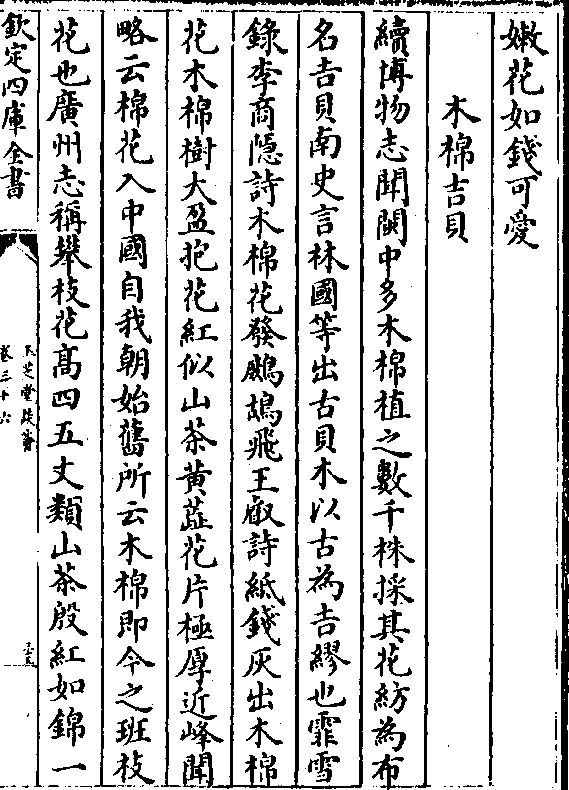 嫩花如錢可愛
木棉吉貝
續博物志聞閩中多木棉植之數千株採其花紡為布
名吉貝南史言林國等出古貝木以古為吉繆也霏雪
錄李商隱詩木棉花發鷓鴣飛王叡詩紙錢灰出木棉
花木棉樹大盈抱花紅似山茶黃蕋花片極厚近峰聞
略云棉花入中國自我朝始舊所云木棉即今之班枝
花也廣州志稱攀枝花高四五丈類山茶殷紅如錦一
欽定四庫全書
卷三十六